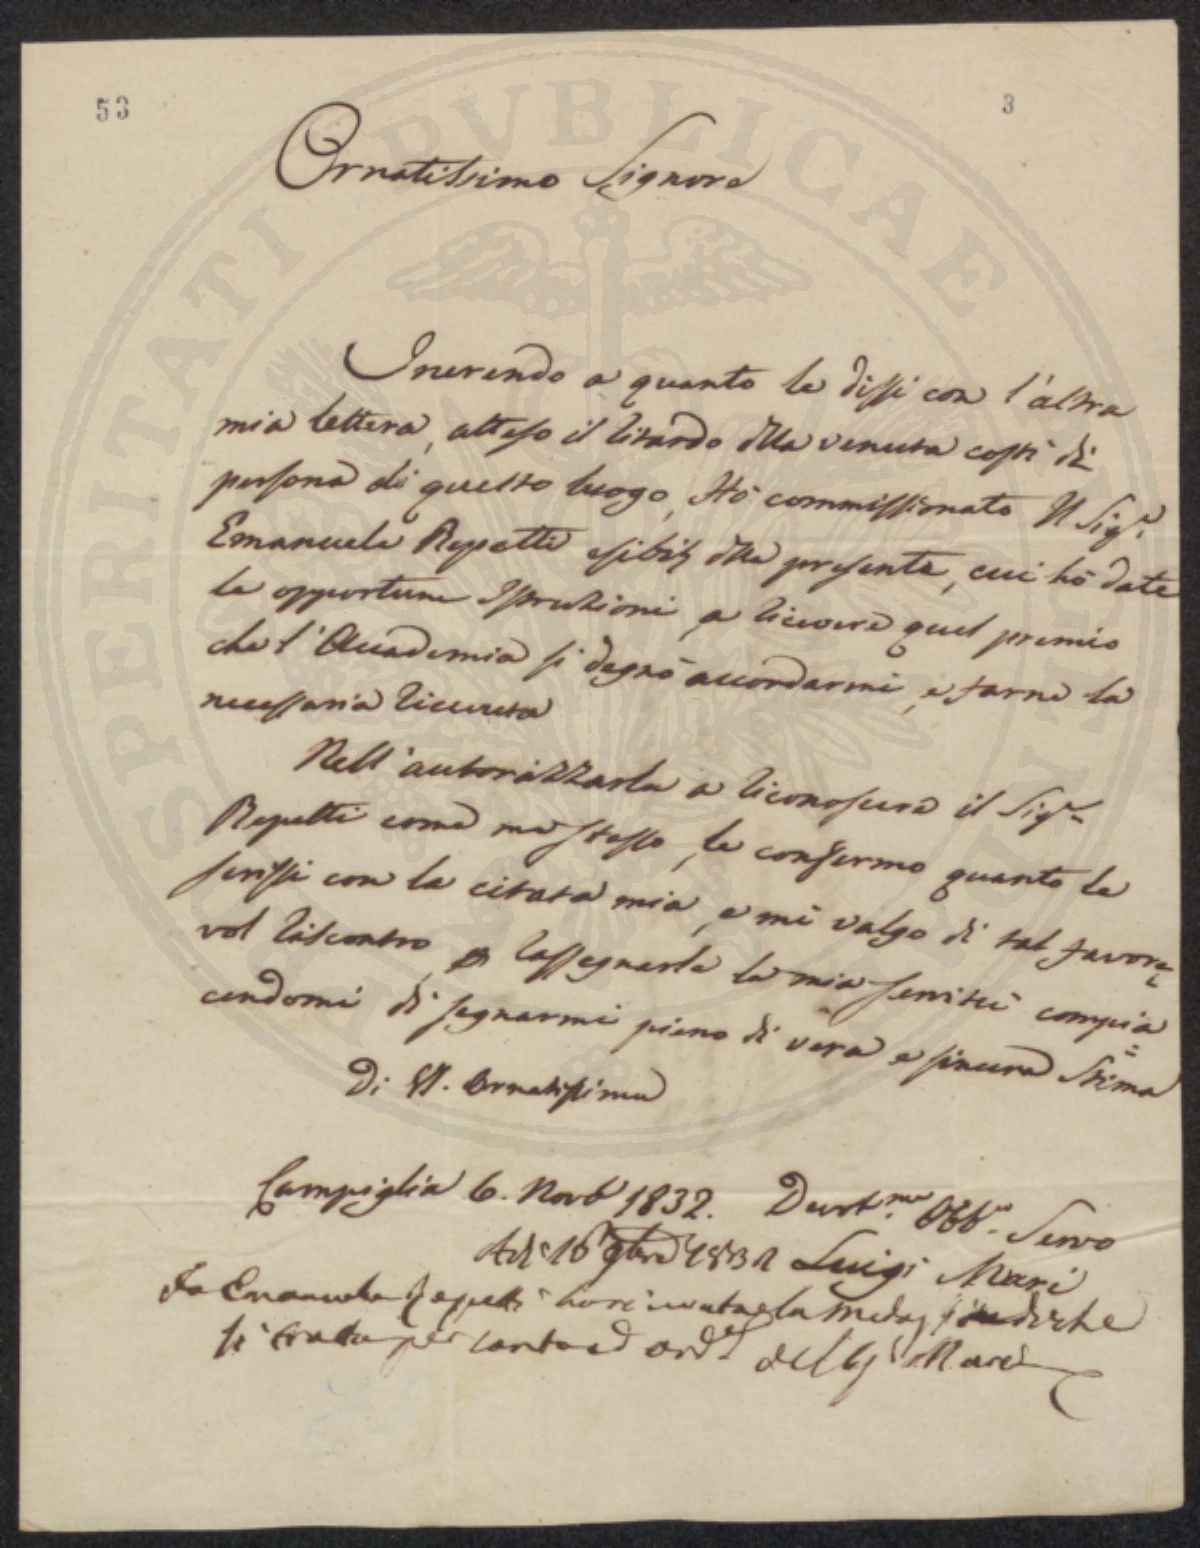 53
3
Ornatissimo Signore
Inerendo a quanto le dissi con l'altra
mia lettera, atteso il ritardo della venuta costì di
persona di questo luogo, Hò commissionato Il Sigr.
Emanuele Repetti della presente, cui hò date
le opportune Istruzioni a ricevere quel premio
che l'Accademia si degnò accordarmi, e farne la
necessaria ricevuta
Nell'autorizzarla a riconoscere il Sigr.
Repetti come me stesso, le confermo quanto le
scrissi con la citata mia, e mi valgo di tal favore=
vol riscontro rassegnarle la mia servitù compia=
cendomi di segnarmi pieno di vera e sincera Stima
Di V. Ornatissima
Campiglia 6. Novb 1832. Devot.mo Obb.o Servo
Adi 16 9bre 1832 Luigi Mari
Io Emanuele Repetti ho ricevuta la di che
si tratta per conto ed ord. del Mari
SPERITATI PVBLICAE